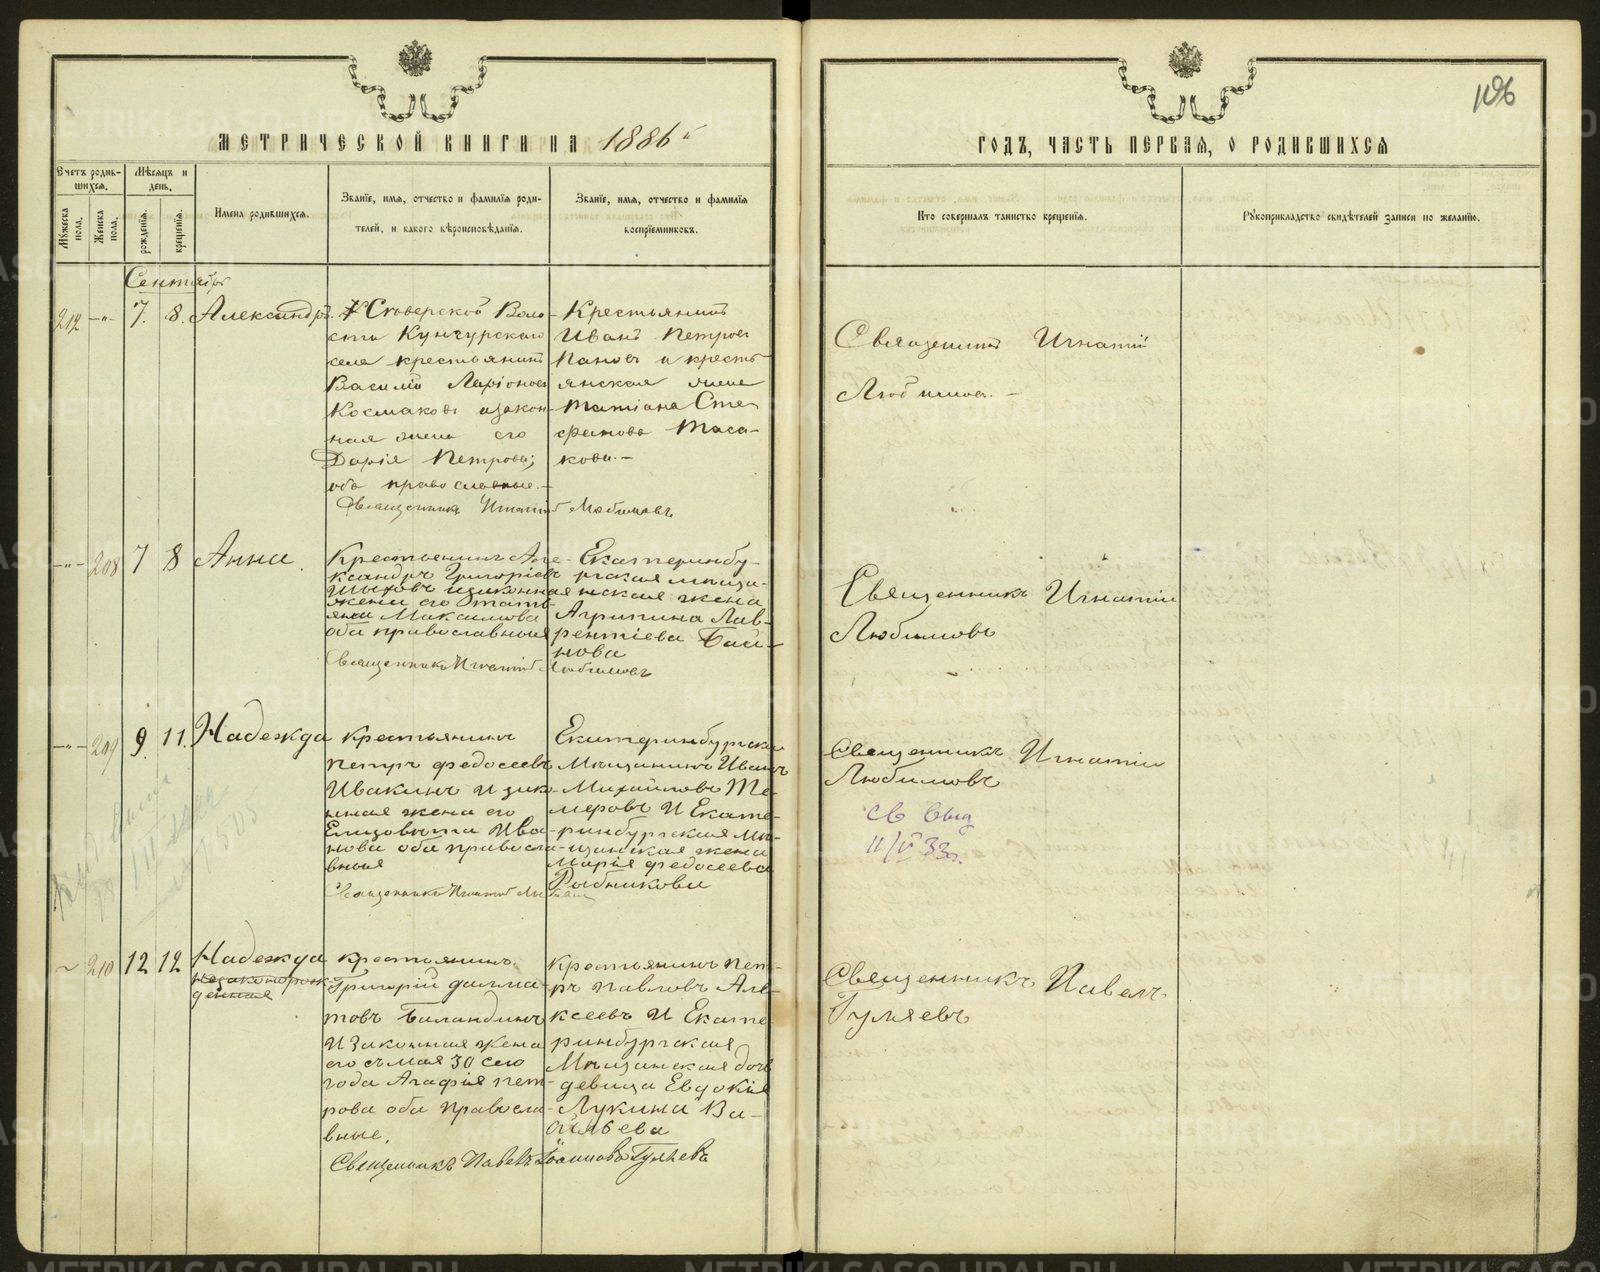 МЕТРИЧЕСКОЙ КНИГИ НА 1886й
ГОДЪ, ЧАСТЬ ПЕРВАЯ, О РОДИВШИХСЯ
106
Счетъ родив-
шихся.
Мужеска пола.
Женска пола.
Мѣсяцъ и день.
рожденія.
крещенія.
Имена родившихся.
Званіе, имя, отчество и фамилія роди-
телей, и какого вѣроисповѣданія.
Званіе, имя, отчество и фамилія
воспріемниковъ.
Кто совершалъ таинство крещенія.
Рукоприкладство свидѣтелей записи по желанію.
Сентябрь
212 -"- 7. 8. Александръ.
Сѣверской Воло-
сти Кунгурскаго
села крестьянинъ
Василій Ларіоновъ
Космаковъ и закон-
ная жена его
Дарія Петрова;
оба православные.-
Священникъ Игнатій Любимовъ
Крестьянинъ
Иванъ Петровъ
Пановъ и кресть-
янская жена
Татіана Сте-
фанова Таса-
кова.-
Священникъ Игнатій
Любимовъ.-
-"- 208 7 8 Анна.
Крестьянинъ Але-
ксандръ Григоріевъ
и законная
жена его Тать-
яна Максимова
оба православныя
Священникъ Игнатій Любимовъ
Екатеринбу-
ргская мѣща-
нская жена
Агрипина Лав-
рентіева Баи-
нова
Священникъ Игнатій
Любимовъ
-"- 209 9. 11. Надежда
крестьянинъ
Петръ Федосеевъ
Ивакинъ и зако-
нная жена его
Елизовѣта Ива-
нова оба правосла-
вныя
Священникъ Игнатій Любимовъ
Екатеринбургскій
Мѣщанинъ Иванъ
Михайловъ Те-
меровъ И Екате-
ринбургская мѣ-
щанская жена
Марія Федосеева
Рыбникова
Священникъ Игнатій
Любимовъ
св выд
11/V 33г.
210 12 12 Надежда
незаконорож-
денная
крестьянинъ
Григорій Далма-
товъ Баландинъ
И Законная жена
его съ мая 30 сего
года Агафія Пет-
рова оба правосла-
вные.
Священникъ Павелъ Іоанновъ Гуляевъ
крестьянинъ Пет-
ръ Павловъ Але-
ксеевъ И Екате-
ринбургская
Мѣщанская дочь
девица Евдокія
Лукина Ва-
сильева
Священникъ Павелъ
Гуляевъ
METRIKI.GASO-URAL.RU